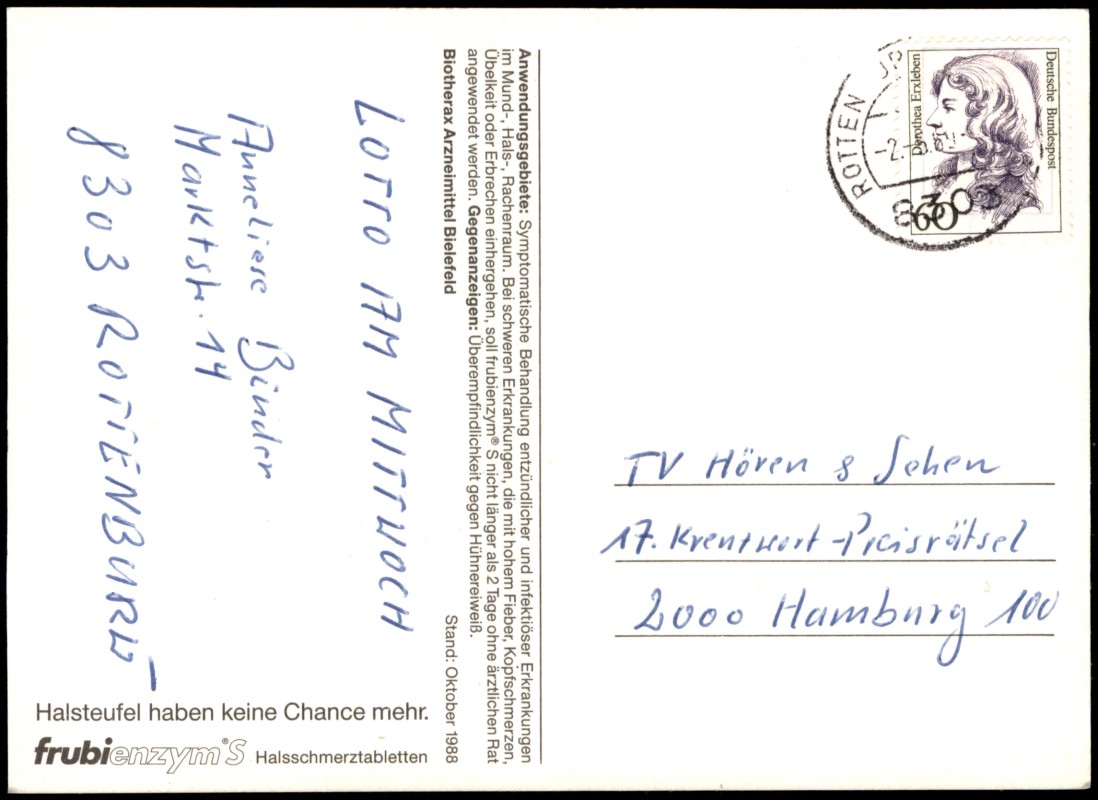 LOTTO AM MITTWOCH
Anneliese Binder
Marktstr. 14
8303 ROTTENBURG
Anwendungsgebiete: Symptomatische Behandlung entzündlicher und infektiöser Erkrankungen
im Mund-, Hals-, Rachenraum. Bei schweren Erkrankungen, die mit hohem Fieber, Kopfschmerzen,
Übelkeit oder Erbrechen einhergehen, soll frubienzym® S nicht länger als 2 Tage ohne ärztlichen Rat
angewendet werden. Gegenanzeigen: Überempfindlichkeit gegen Hühnereiweiß.
Biotherax Arzneimittel Bielefeld
Stand: Oktober 1988
Halsteufel haben keine Chance mehr.
frubienzym®S Halsschmerztabletten
Deutsche Bundespost
Dorothea Erxleben
60
ROTTEN
8303
TV Hören & Sehen
17. Kreutwort-Preisrätsel
2000 Hamburg 100